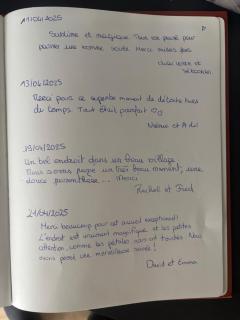 11/04/2025
Sublime et magique. Tous est pensé pour
passer une bonne soirée. Merci milles fois
et
Sébastien
13/04/2025
Merci pour ce superbe moment de détente hors
du temps. Tout était parfait ♡♡
et
19/04/2025
Un bel endroit dans un beau village.
Nous avons passé un très beau moment, une
douce parenthèse... Merci
Rachel et Fred
21/04/2025
Merci beaucoup pour cet accueil exceptionnel!
L'endroit est vraiment magnifique et les petites
attention, comme les pétales sont au
avons passé une merveilleuse soirée!
David et Emma